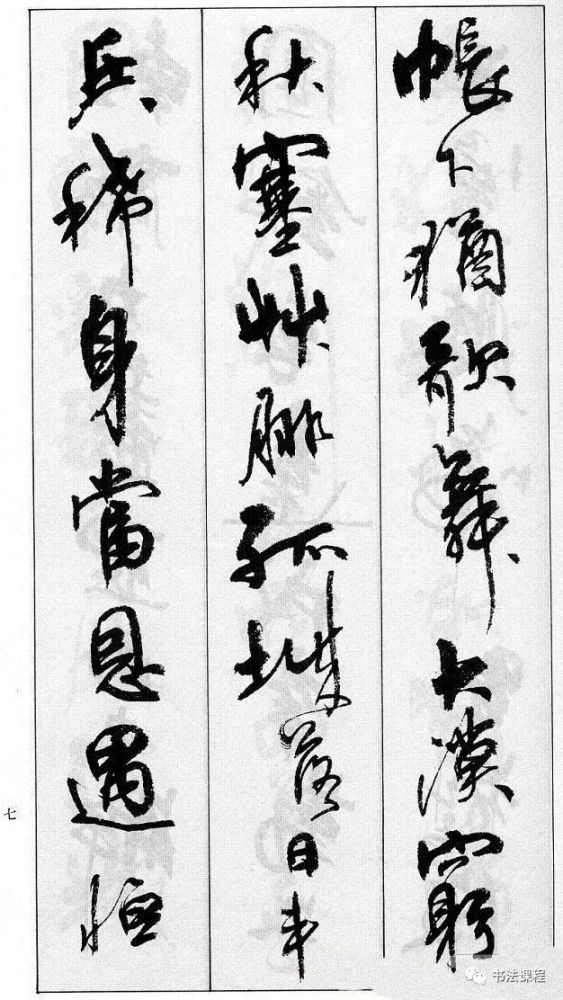 帳下猶歌舞大漠窮
秋塞艸腓孤城落日斗
兵稀身當恩遇恒
七
书法课程